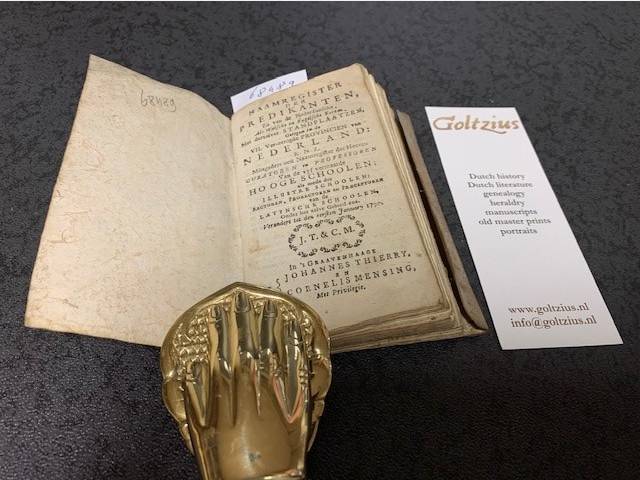 62489
68489
NAAMREGISTER
DER
PREDIKANTEN,
Zo van de Nederduitsche,
Als Walsche en Engelsche Kerken,
Met derzelver STANDPLAATZEN,
Gelegen in de
VII. Vereenigde PROVINCIEN van
NEDERLAND:
E. N. Z.
Mitsgaders een Naamregister der Heeren
CURATOREN en PROFESSOREN
Van de vyf voornaamste
HOOGE SCHOOLEN;
als mede der
ILLUSTRE SCHOOLEN;
RECTOREN, PRORECTOREN en PRAECEPTOREN
van de
LATYNSCHE SCHOOLEN,
Onder het zelve Gebied enz.
Verandere tot den eersten January
J. T. & C. M.
In 's GRAAVENHAAGE
JOHANNES THIERRY,
EN
CORNELIS MENSING,
Met Privilegie.
Goltzius
Dutch history
Dutch literature
genealogy
heraldry
manuscripts
old master prints
portraits
www.goltzius.nl
info@goltzius.nl